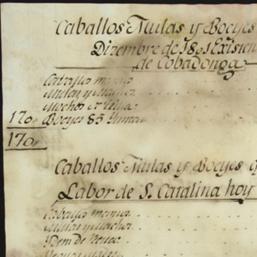 Caballos Mulas y Boeyes
Dizembre de 1801 Existen
de Cobadonga
Caballos mansos
Mulas y Machos
Machos
170 Boeyes 85 Yuntas
170
Caballos Mulas y Boeyes q
Labor de S. Catalina hoy
Caballos mansos
Mulas y Machos
Idem de